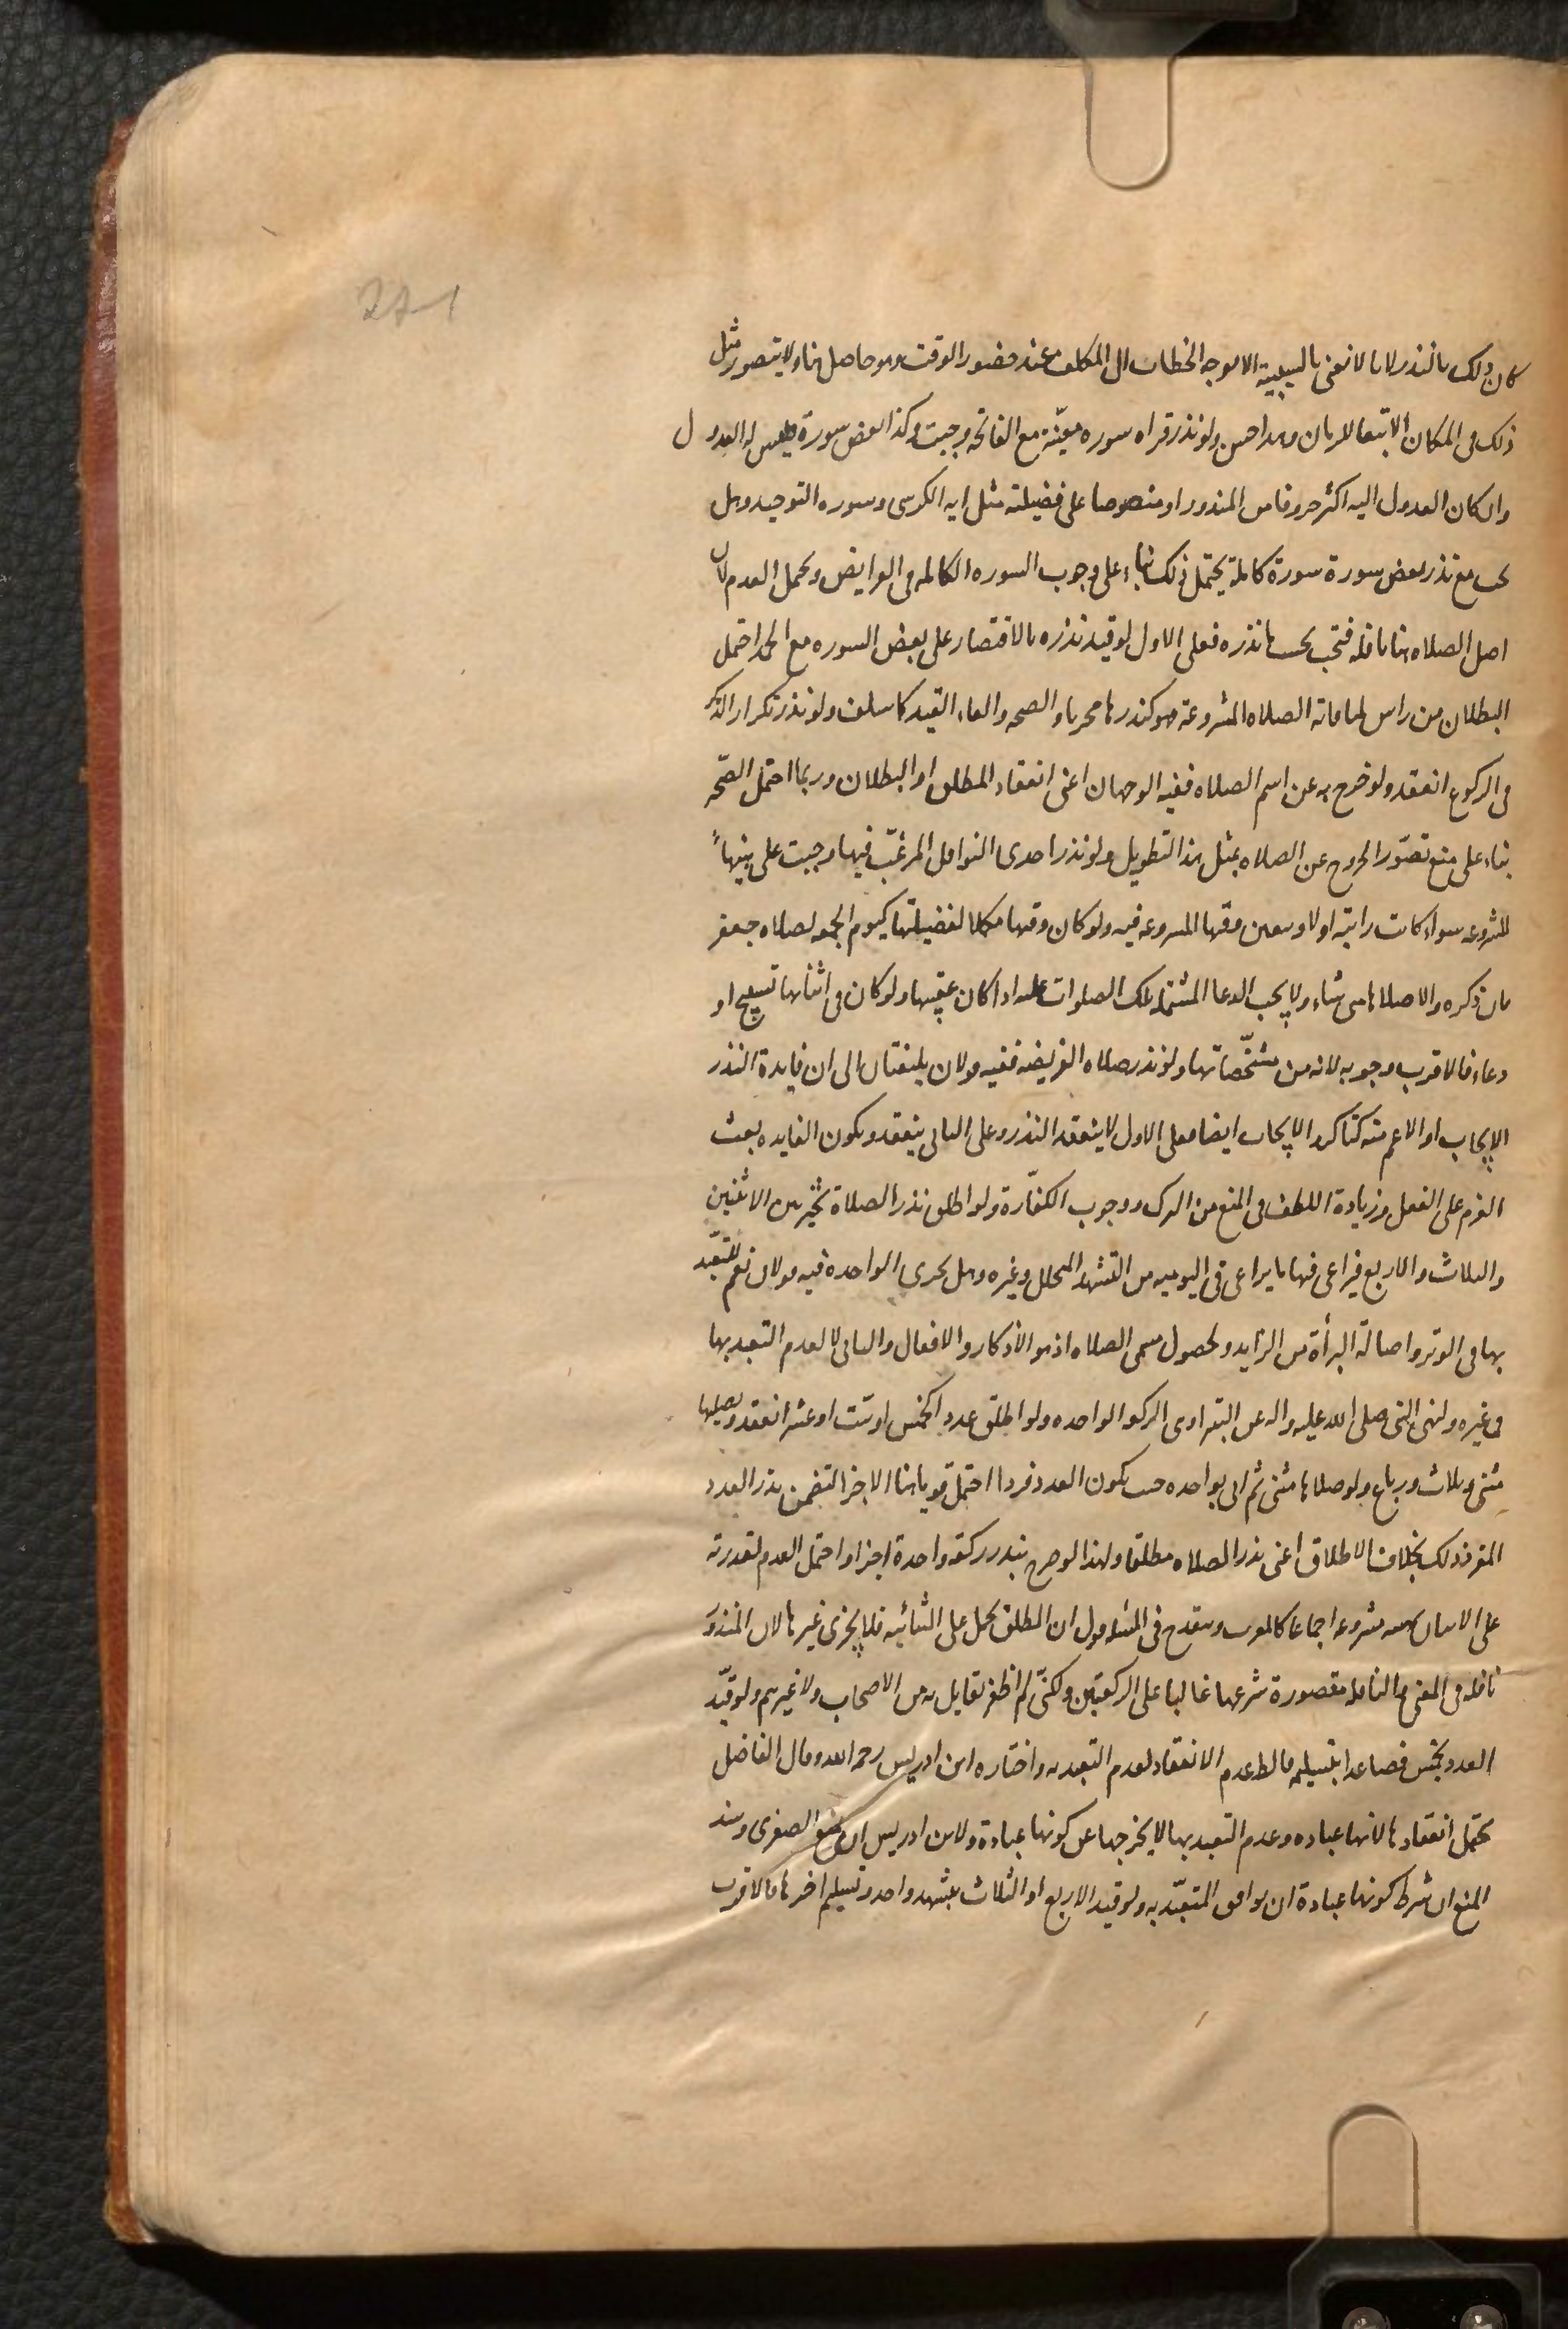 271
كان ذلك بالنذر لانا لا نعنى بالسببية الا توجه الخطاب الى المكلف عند حضور الوقت وهو حاصل هنا ولا يتصور مثل
ذلك فى المكان الا تبعا للزمان وهذا حسن ولو نذر قراه سوره معيّنة مع الفاتحه وجبت وكذا بعض سورة وليس له العدول
وان كان العدول اليه اكثر حروفا من المنذور او منصوصا على فضيلته مثل ايه الكرسى وسوره التوحيد وهل
يجب مع نذر بعض سورة سورة كاملة يحتمل ذلك بناء على وجوب السوره الكامله فى الفرايض ويحتمل العدم لان
اصل الصلاه هنا نافله فتجب بحسب ما نذره فعلى الاول لو قيد نذره بالاقتصار على بعض السوره مع الحمد احتمل
البطلان من راس لمنافاته الصلاه المشروعة فهو كنذرها محرما والصحه والغاء القيد كما سلف ولو نذر تكرار الذكر
فى الركوع انعقد ولو خرج به عن اسم الصلاه ففيه الوجهان اعنى انعقاد المطلق او البطلان وربما احتمل الصّحه
بناء على منع تصوّر الخروج عن الصلاه بمثل هذا التطويل ولو نذر احدى النوافل المرغّب فيها وجبت على هيئها
المشروعه سواء كانت راتبة او لا ويتعين وقتها المشروعه فيه ولو كان وقتها مكملا لفضيلتها كيوم الجمعه لصلاه جعفر
فان ذكره والا صلاها متى شاء ولا يجب الدعا المشتمله تلك الصلوات عليه اذا كان عقيبها ولو كان فى اثنائها تسبيح او
دعاء فالاقرب وجوبه لانه من مشخّصاتها ولو نذر صلاه الفريضه ففيه قولان يلتفتان الى ان فايدة النذر
الايجاب او الاعم منه كتاكد الايجاب ايضا فعلى الاول لا ينعقد النذر وعلى الثانى ينعقد وتكون الفايده بعث
العزم على الفعل وزيادة اللطف فى المنع من الترك ووجوب الكفّارة ولو اطلق نذر الصلاة تخير بين الاثنين
والثلاث والاربع فيراعى فيها ما يراعى فى اليوميه من التشهد المحلل وغيره وهل تجزى الواحده فيه قولان نعم للتعبّد
بها فى الوتر واصالة البرأة من الزايد ولحصول مسمى الصلاه اذ هو الأذكار والافعال والثانى لا لعدم التعبد بها
فى غيره ولنهى النبى صلى الله عليه واله عن البتراء وهى الركعه الواحده ولو اطلق عددا كخمس او ستّ او عشر انعقد ويصليها
مثنى وثلاث ورباع ولو صلاها مثنى ثم اتى بواحده حيث يكون العدد فردا احتمل قويا هنا الاجزا لتضمن نذر العدد
المفرد ذلك بخلاف الاطلاق اعنى نذر الصلاه مطلقا ولهذا لو صرح بنذر ركعة واحدة اجزا واحتمل العدم لقدرته
على الاتيان بهيئه مشروعه اجماعا كالمغرب ويتقدح فى المسئله قول ان المطلق يحمل على الثنائيه فلا يجزى غيرها لان المنذوَر
نافله فى المعنى والنافله مقصورة شرعها غالبا على الركعتين ولكنّى لم اظفر بقايل به من الاصحاب ولا غيرهم ولو قيّد
العدد بخمس فصاعدا بتسليمه فالظ عدم الانعقاد لعدم التعبد به واختاره ابن ادريس رحمه الله وقال الفاضل
يحتمل انعقادها لانها عباده وعدم التعبد بها لا يخرجها عن كونها عبادة ولابن ادريس ان يمنع الصغرى وسند
المنع ان شرط كونها عبادة ان يوافق المتعبّد به ولو قيد الاربع او الثلاث بتشهد واحد وتسليم اخرها فالاقرب